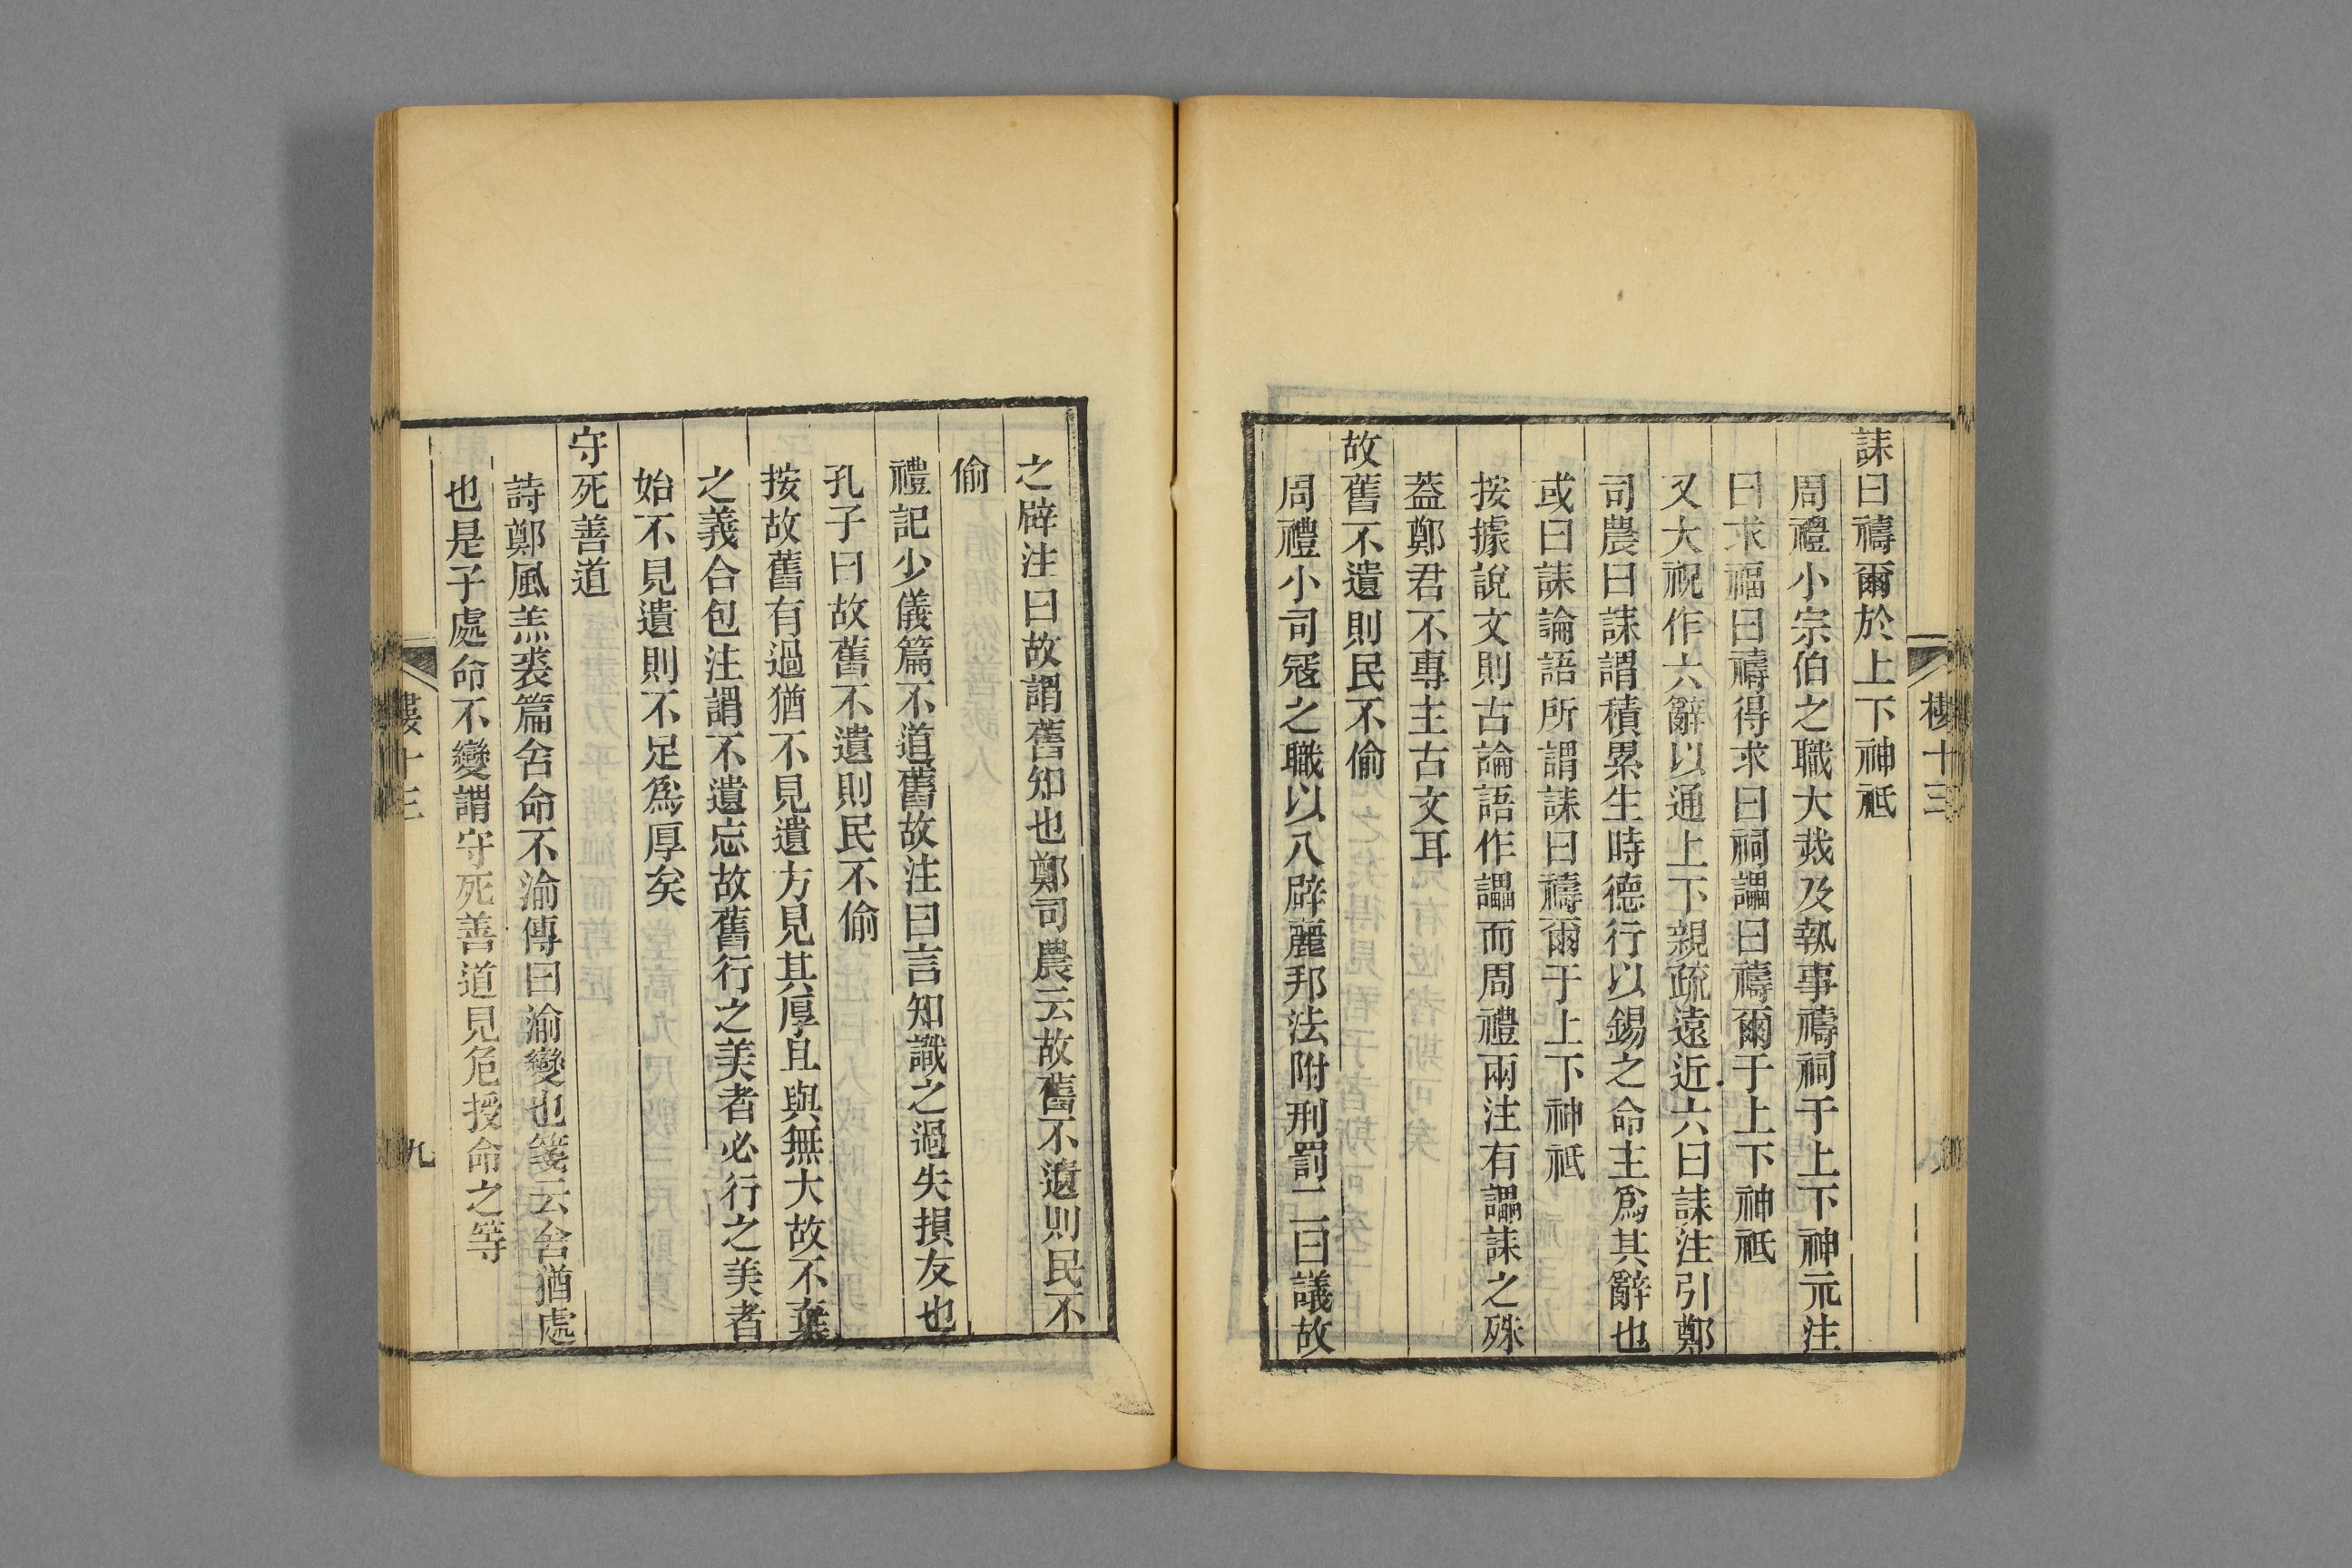 樓十三
誄曰禱爾於上下神祇
周禮小宗伯之職大烖及執事禱祠于上下神元注
曰求福曰禱得求曰祠讄曰禱爾于上下神祇
又大祝作六辭以通上下親疏遠近六曰誄注引鄭
司農曰誄謂積累生時德行以錫之命主爲其辭也
或曰誄論語所謂誄曰禱爾于上下神祇
按據說文則古論語作讄而周禮兩注有讄誄之殊
蓋鄭君不專主古文耳
故舊不遺則民不偷
周禮小司寇之職以八辟麗邦法附刑罰二曰議故
之辟注曰故謂舊知也鄭司農云故舊不遺則民不
偷
禮記少儀篇不道舊故注曰言知識之過失損友也
孔子曰故舊不遺則民不偷
按故舊有過猶不見遺方見其厚且與無大故不棄
之義合包注謂不遺忘故舊行之美者必行之美者
始不見遺則不足爲厚矣
守死善道
詩鄭風羔裘篇舍命不渝傳曰渝變也箋云舍猶處
也是子處命不變謂守死善道見危授命之等
樓十三
九